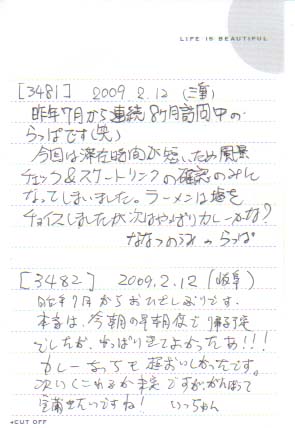 LIFE IS BEAUTIFUL
[3481] 2009.2.12 (三重)
昨年7月から連続8ヶ月訪問中の
らっぱです(笑)
今回は滞在時間が短いため風景
チェック&スケートリンクの確認のみに
なってしまいました。ラーメンは塩を
チョイスしましたが次はやっぱりカレーかな?
ななつのうみのらっぱ
[3482] 2009.2.12 (岐阜)
昨年7月からおひさしぶりです。
本当は、今朝の早朝便で帰る予定
でしたが、やっぱりきてよかったあ!!!
カレーなっちも超おいしかったです。
次いつこれるか未定ですが、がんばって
全菌せたいですね! いっちゃん
CUT OFF